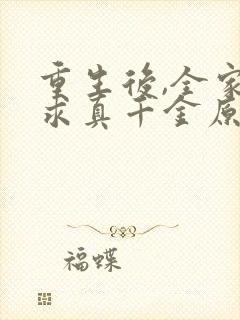 重生後,全家
求真千金原
福蝶